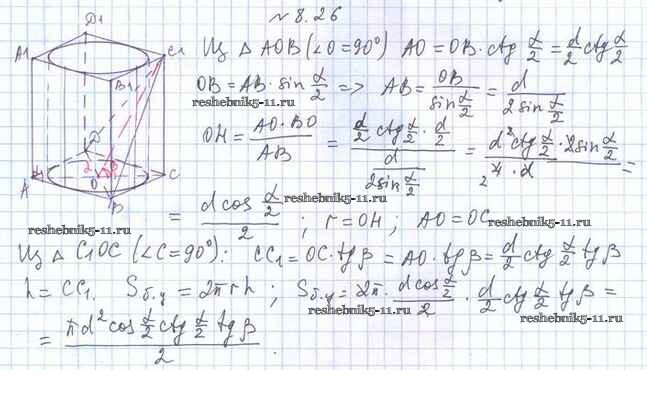 № 8.26
D1
A1
C1
B1
D
α
β
A
O
C
B
H
Из △ AOB (∠O=90°) AO = OB · ctg α/2 = d/2 ctg α/2
OB = AB · sin α/2 => AB = OB / sin α/2 = d / 2 sin α/2
reshebnik5-11.ru
OH = AO · BO / AB = (d/2 ctg α/2 · d/2) / (d / 2 sin α/2) = d² ctg α/2 · 2 sin α/2 / 4 · d =
2
= d cos α/2 / 2 ; r = OH ; AO = OC
reshebnik5-11.ru
reshebnik5-11.ru
Из △ C1OC (∠C=90°): CC1 = OC · tg β = AO · tg β = d/2 ctg α/2 tg β
h = CC1. Sб.у = 2πrh ; Sб.у = 2π · d cos α/2 / 2 · d/2 ctg α/2 tg β =
reshebnik5-11.ru
= πd² cos α/2 ctg α/2 tg β / 2 .
reshebnik5-11.ru